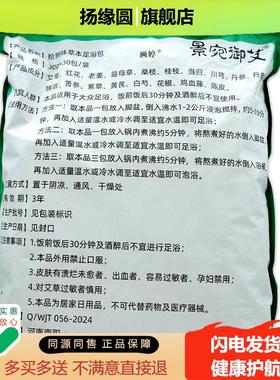 扬缘圆 旗舰店
景宛御艾
【产品名称】 草本足浴包 御婷
30包/袋
艾草、红花、老姜、益母草、桑枝、桂枝、当归、川芎、丹参、
独活、苦参、
花椒、鸡血藤、陈皮。
本品适用于大众足浴，饭前饭后30分钟及酒醉后不宜
方法一：本品取一包放入脚盆，倒入沸水1-2公斤浸泡搅拌，约5-10分
再加入适量温水或冷水调至适宜水温即可足浴；
方法二：本品取一包放入锅内煮沸约5分钟，将熬煮好的水倒入脚盆
再加入适量温水或冷水调至适宜水温即可足浴；
方法三：本品取三包放入锅内煮沸约5分钟，将熬煮好的水倒入浴桶
再加入适量温水或冷水调至适宜水温即可泡浴。
置于阴凉、通风、干燥处
3年
生产批号】见包装标识
见封口
注意事项】1.饭前饭后30分钟及酒醉后不宜进行足浴；
2.本品外用禁止口服；
3.皮肤有溃烂未愈者、出血者、容易过敏者、孕妇禁用；
4.对艾草过敏者慎用；
5.本品为居家日用品，不可代替药物及医疗器械。
Q/WJT 056-2024
河南南阳
正品
放心
同源同售 正品保障
多买多送 不满意直接退
闪电发货
健康护航